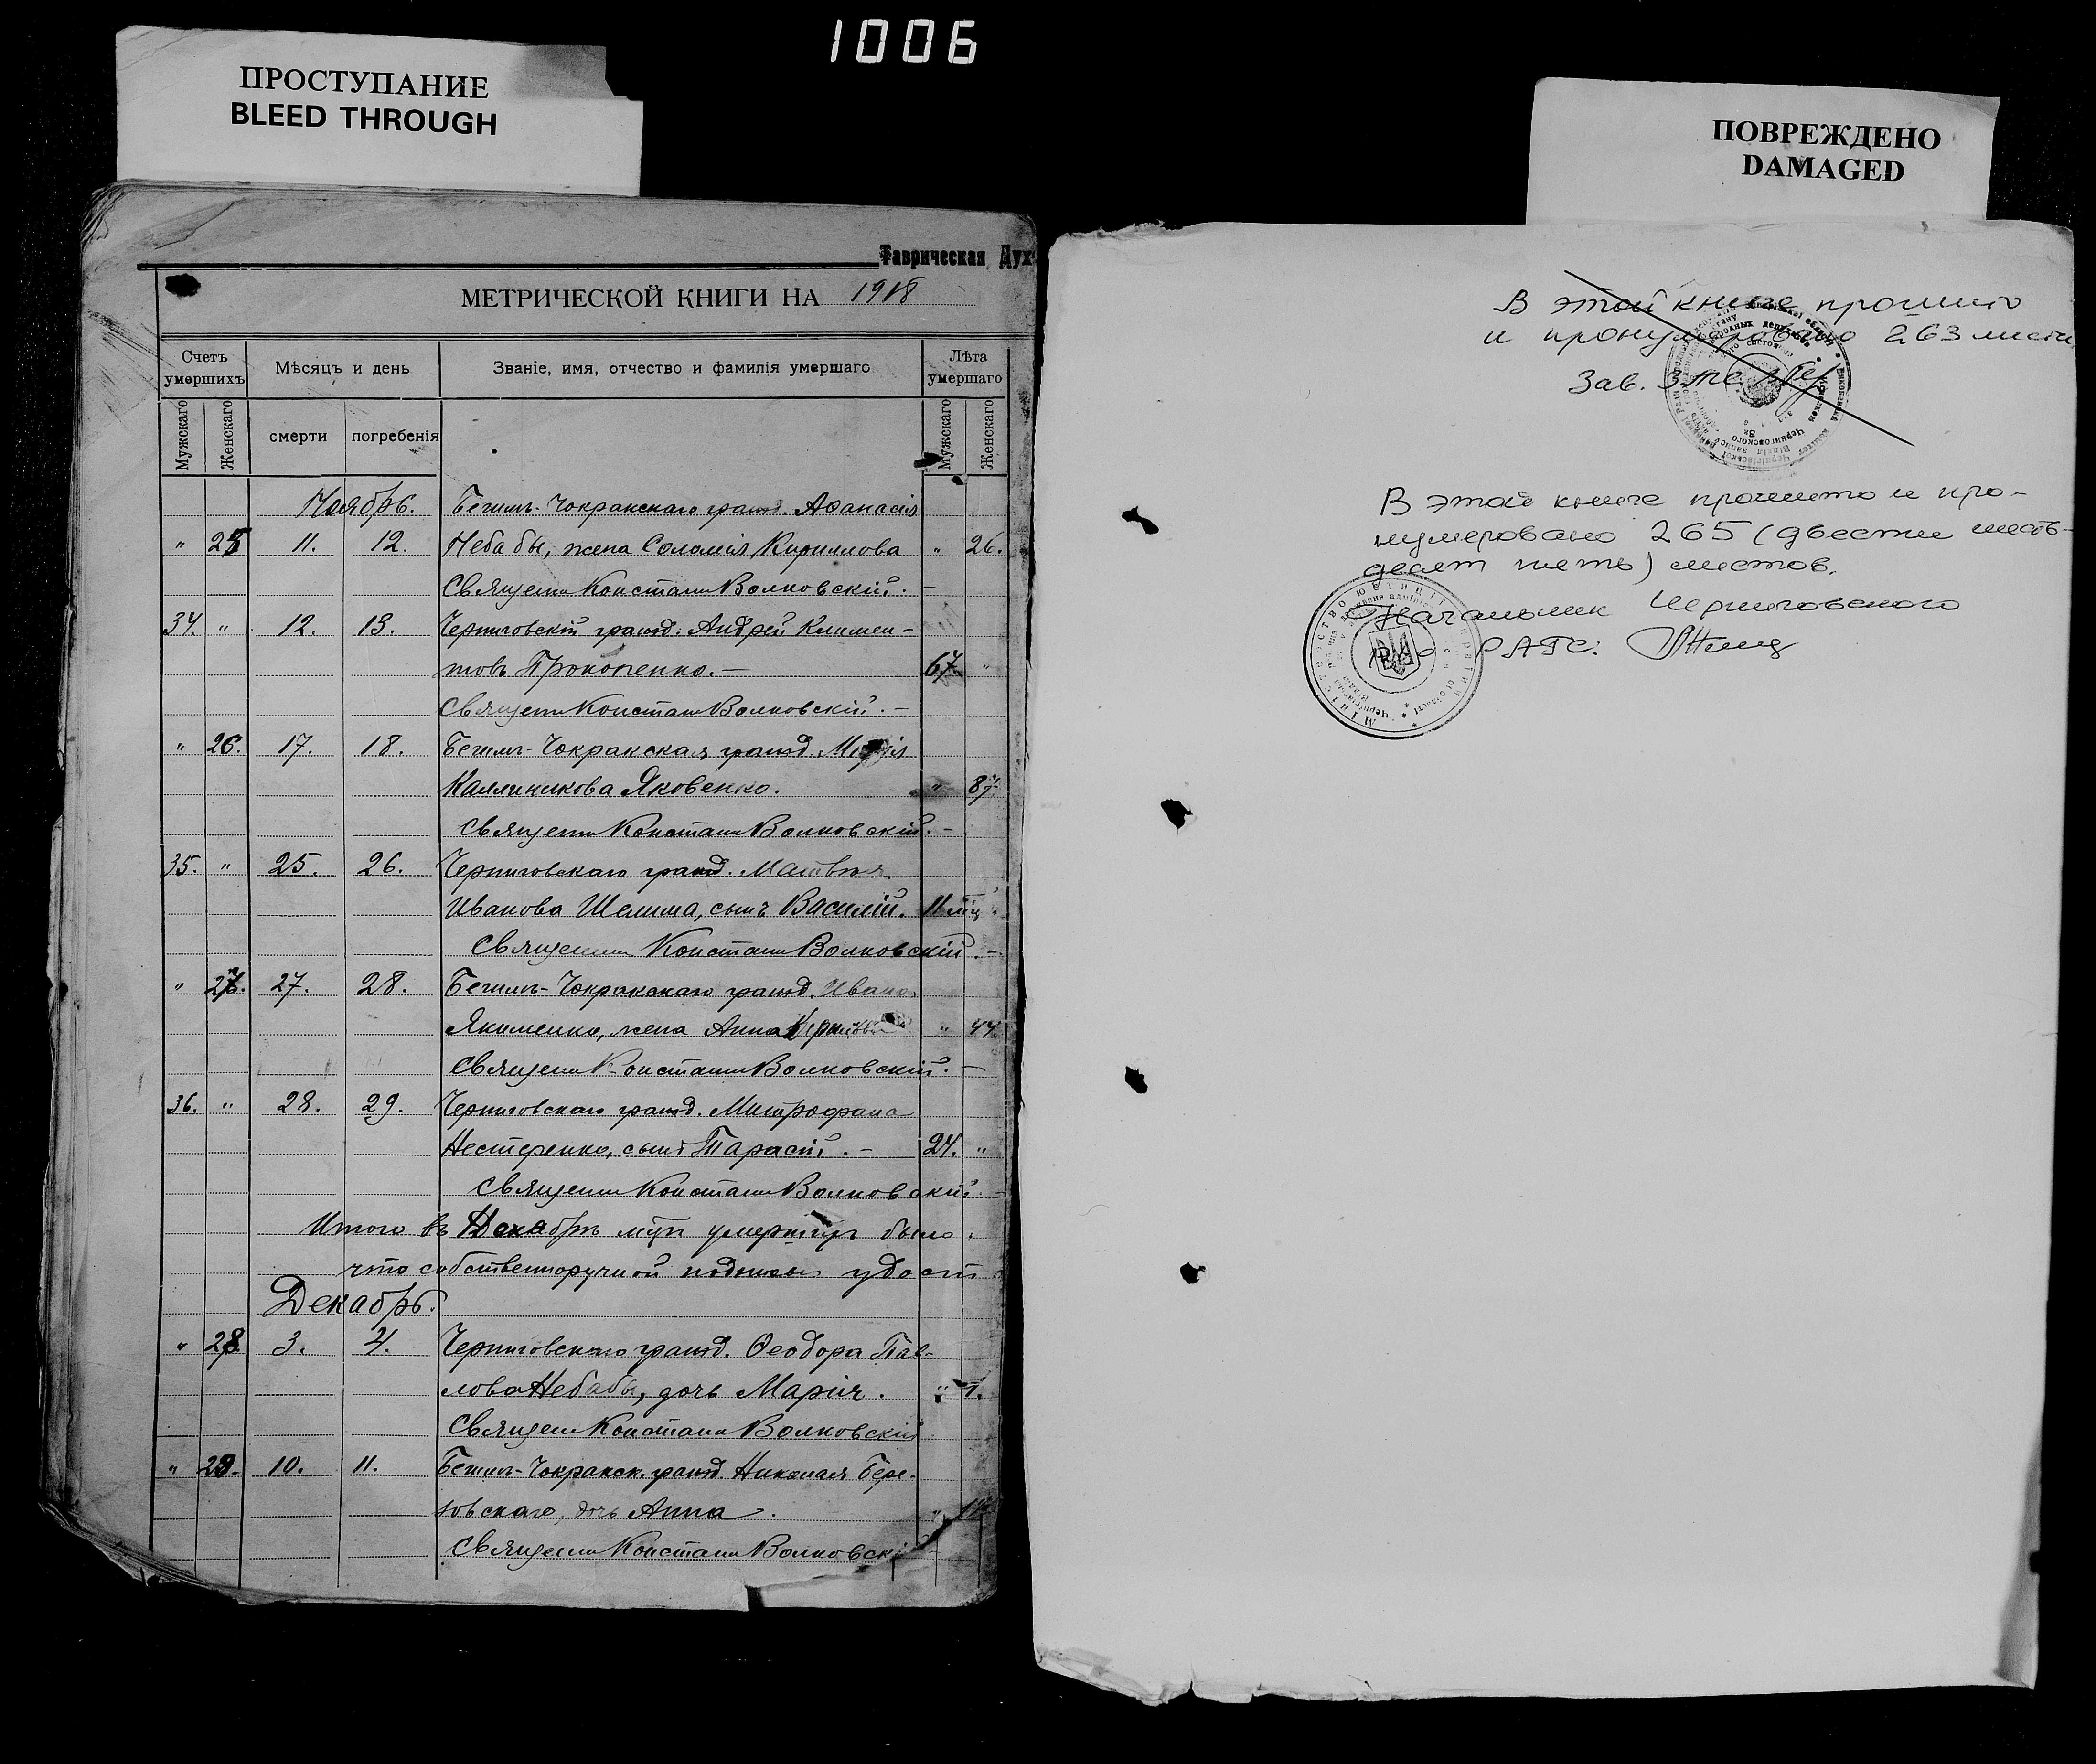 1006
ПРОСТУПАНИЕ
BLEED THROUGH
ПОВРЕЖДЕНО
DAMAGED
Таврическая Дух
МЕТРИЧЕСКОЙ КНИГИ НА 1918
Счетъ умершихъ
Мѣсяцъ и день
Званіе, имя, отчество и фамилія умершаго
Лѣта умершаго
Мужскаго Женскаго смерти погребенія Мужскаго Женскаго
Ноябрь. Бегимъ-Чокракскаго гражд. Аѳанасія
" 25 11. 12. Небабы, жена Соломія Кириллова " 26.
Священ Констант Волковскій. –
34. " 12. 13. Черниговскій гражд. Андрей Климен–
товъ Прокопенко. – 67 "
Священ Констант Волковскій. –
" 26. 17. 18. Бегимъ-Чокракская гражд.
Каллиникова Яковенко. " 87.
Священ Констант Волковскій. –
35. " 25. 26. Черниговскаго гражд. Матвѣя
Иванова Шелима, сынъ Василій. 11 мц.
Священ Констант Волковскій. –
" 27. 27. 28. Бегимъ-Чокракскаго гражд. Ивана
Якименко, жена Анна " 44.
Священ Констант Волковскій. –
36. " 28. 29. Черниговскаго гражд. Митрофана
Нестеренко, сынъ Тарасій. – 24. "
Священ Констант Волковскій. –
Итого въ было
что собственноручной удост
Декабрь.
" 28 3. 4. Черниговскаго гражд. Ѳеодора Пав–
лова Небабы, дочь Марія. " 1.
Священ Констант Волковскій
" 29. 10. 11. Бегимъ-Чокракск. гражд. Николая Бере–
зовскаго, дочь Анна. "
Священ Констант Волковскі
В этой книге прошито
и пронумеровано 263 листа
Зав.
В этой книге прошито и про–
нумеровано 265 (двести шесть–
десят пять) листов.
Начальник Черниговского
РАГС.